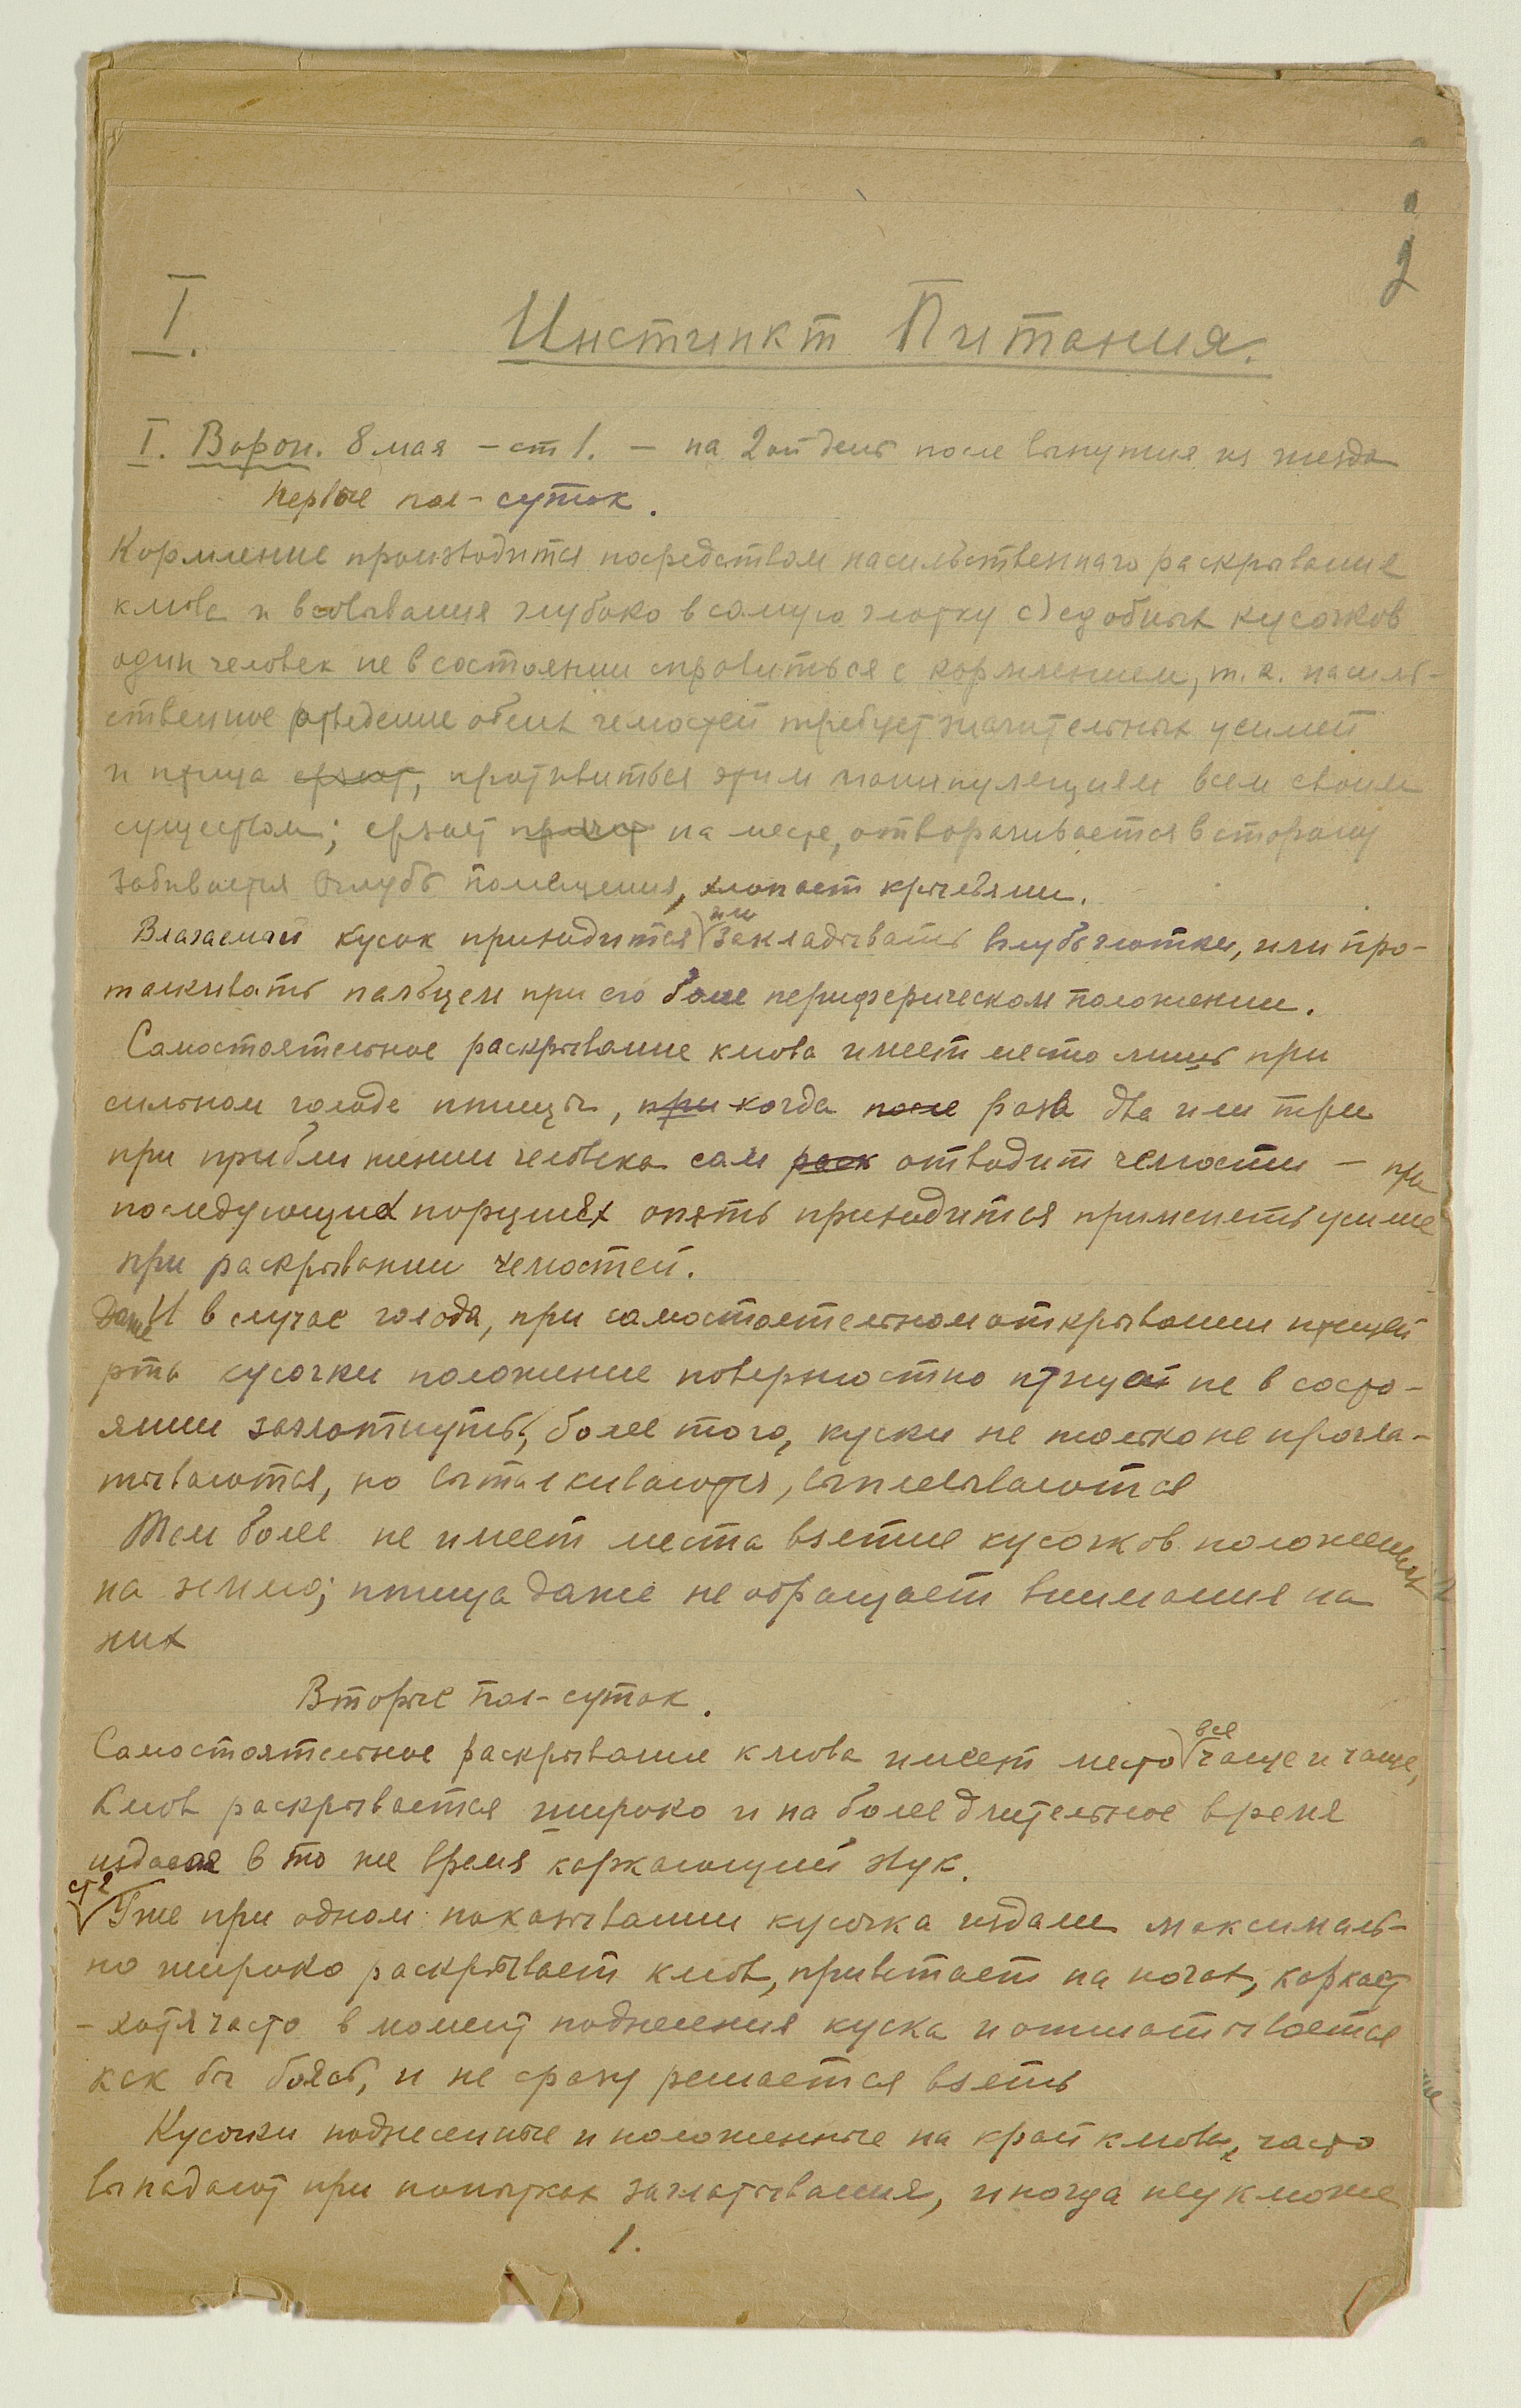 2
I. Инстинкт Питания.
I. Ворон. 8 мая – ст 1. – на 2ой день после вынутия из гнезда
Первые пол-суток.
Кормление производится посредством насильственнаго раскрывания
клюва и всовывания глубоко в самую глотку съедобных кусочков
один человек не в состоянии справиться с кормлением, т.к. насиль-
ственное отведение обеих челюстей требует значительных усилий
и птица ерзает, противиться этим манипуляциям всем своим
существом; ерзает на месте, отворачивается в сторону
забивается вглубь помещения, хлопает крыльями.
Влагаемый кусок приходится или закладывать вглубь глотки, или про-
талкивать пальцем при его более периферическом положении.
Самостоятельное раскрывание клюва имеет место лишь при
сильном голоде птицы, при когда после раза два или три
при приближении человека сам раск отводит челюсти – при
последующих порциях опять приходится применять усилие
при раскрывании челюстей.
Даже И в случае голода, при самостоятельном открывании птицей
рта кусочки положение поверхностно птица не в состо-
янии заглотнуть; более того, куски не только не прогла-
тываются, но выталкиваются, выплевываются
Тем более не имеет места взятие кусочков положенных
на землю; птица даже не обращает внимания на
них
Вторые пол-суток.
Самостоятельное раскрывание клюва имеет место все чаще и чаще,
Клюв раскрывается широко и на более длительное время
издавая в то же время каркающий звук.
ст 2
Уже при одном показывании кусочка издали максималь-
но широко раскрывает клюв, привстает на ногах, каркает
– хотя часто в момент поднесения куска и отшатывается
как бы боясь, и не сразу решается взять
Кусочки поднесенные и положенные на край клюва, часто
выпадают при попытках заглатывания, иногда неуклюже
1.